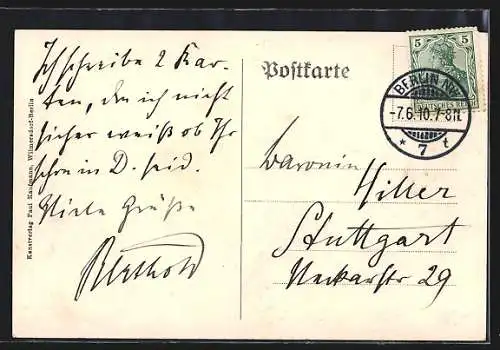 Ich schreibe 2 Kar-
ten, da ich nicht
sicher weiß ob Ihr
schon in D. seid.
Viele Grüße
Berthold
Kunstverlag Paul Kaufmann, Wilmersdorf-Berlin
Postkarte
5 5
BERLIN NW
-7.6.10.7-8N.
* 7 t
DEUTSCHES REICH
Baronin
Hiller
Stuttgart
Neckarstr 29